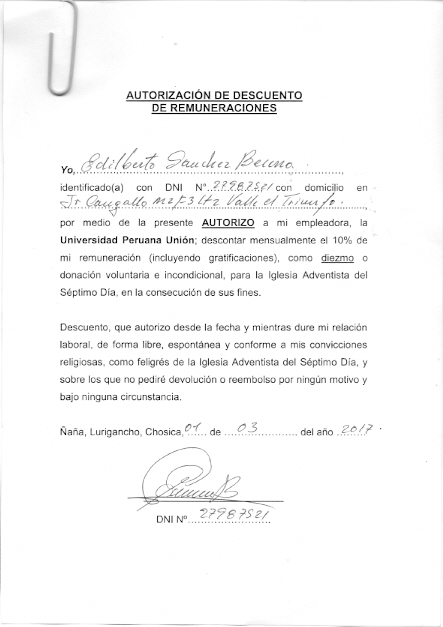 AUTORIZACIÓN DE DESCUENTO
DE REMUNERACIONES
Yo, Edilberto Sanchez
identificado(a) con DNI Nº 27987521 con domicilio en
Jr Cangallo Mz F3 Lt 2 Valle el Triunfo.
por medio de la presente AUTORIZO a mi empleadora, la
Universidad Peruana Unión; descontar mensualmente el 10% de
mi remuneración (incluyendo gratificaciones), como diezmo o
donación voluntaria e incondicional, para la Iglesia Adventista del
Séptimo Día, en la consecución de sus fines.
Descuento, que autorizo desde la fecha y mientras dure mi relación
laboral, de forma libre, espontánea y conforme a mis convicciones
religiosas, como feligrés de la Iglesia Adventista del Séptimo Día, y
sobre los que no pediré devolución o reembolso por ningún motivo y
bajo ninguna circunstancia.
Ñaña, Lurigancho, Chosica, 01 de 03 del año 2017.
DNI Nº 27987521